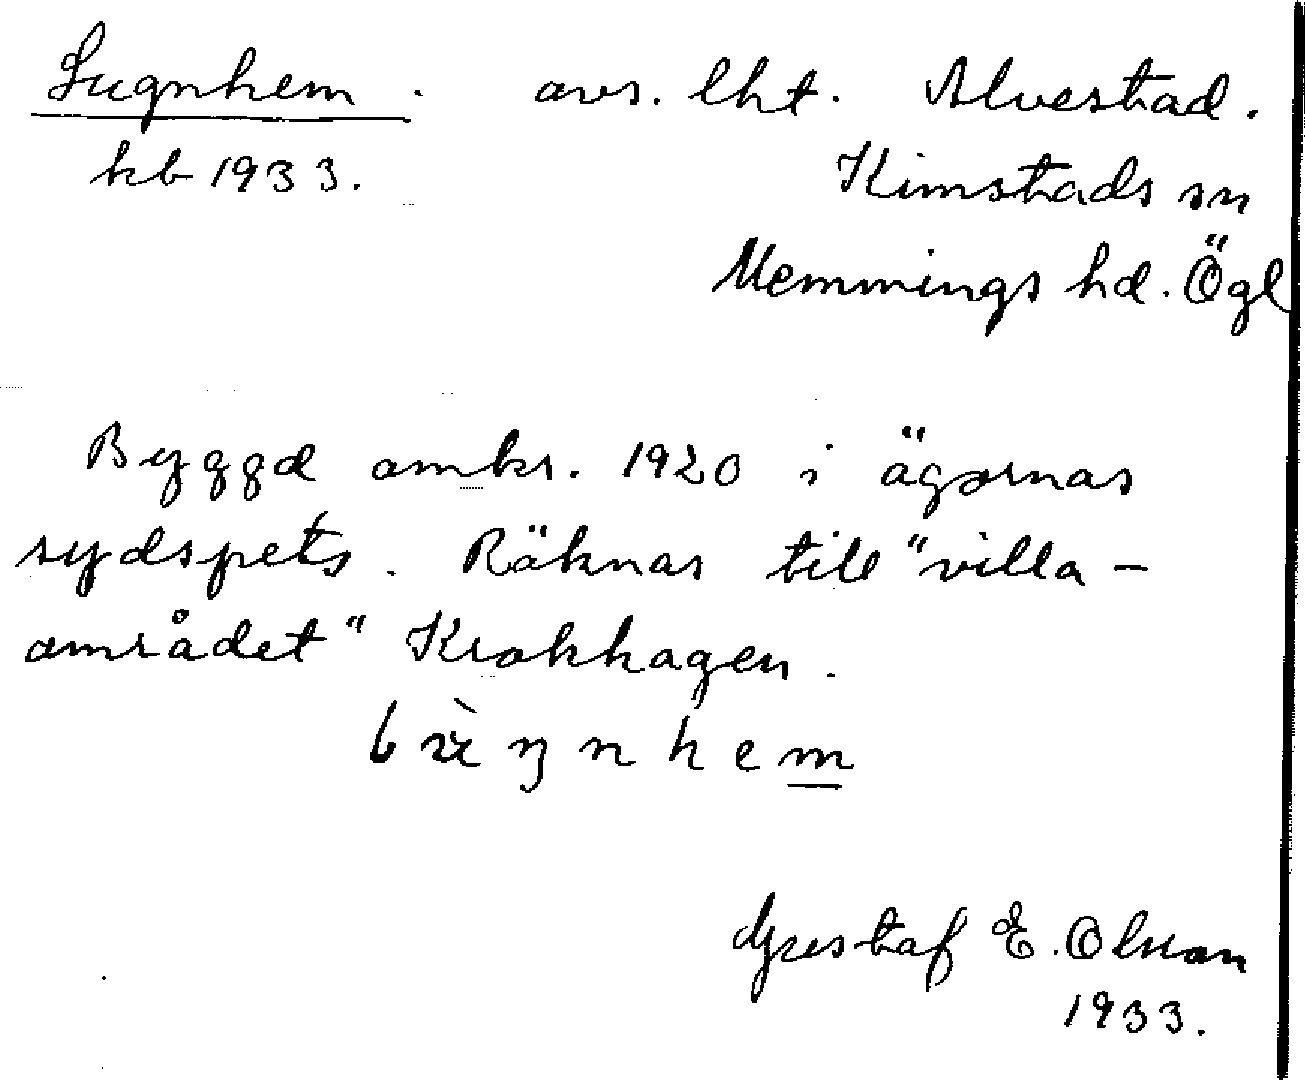 Lugnhem. avs. lht. Alvestad.
kb 1933. Kimstads sn
Memmings hd. Ögl
Byggd omkr. 1920 i ägornas
sydspets. Räknas till "villa-
området" Krokhagen.
Gustaf E. Olson
1933.